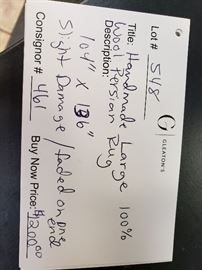 Lot # 518
G
GLEATON'S
Title: Handmade Large 100%
Wool Persian Rug
Description:
104" x 136"
Slight Damage / faded on one
end
Consignor # 461
Buy Now Price: $1200.00